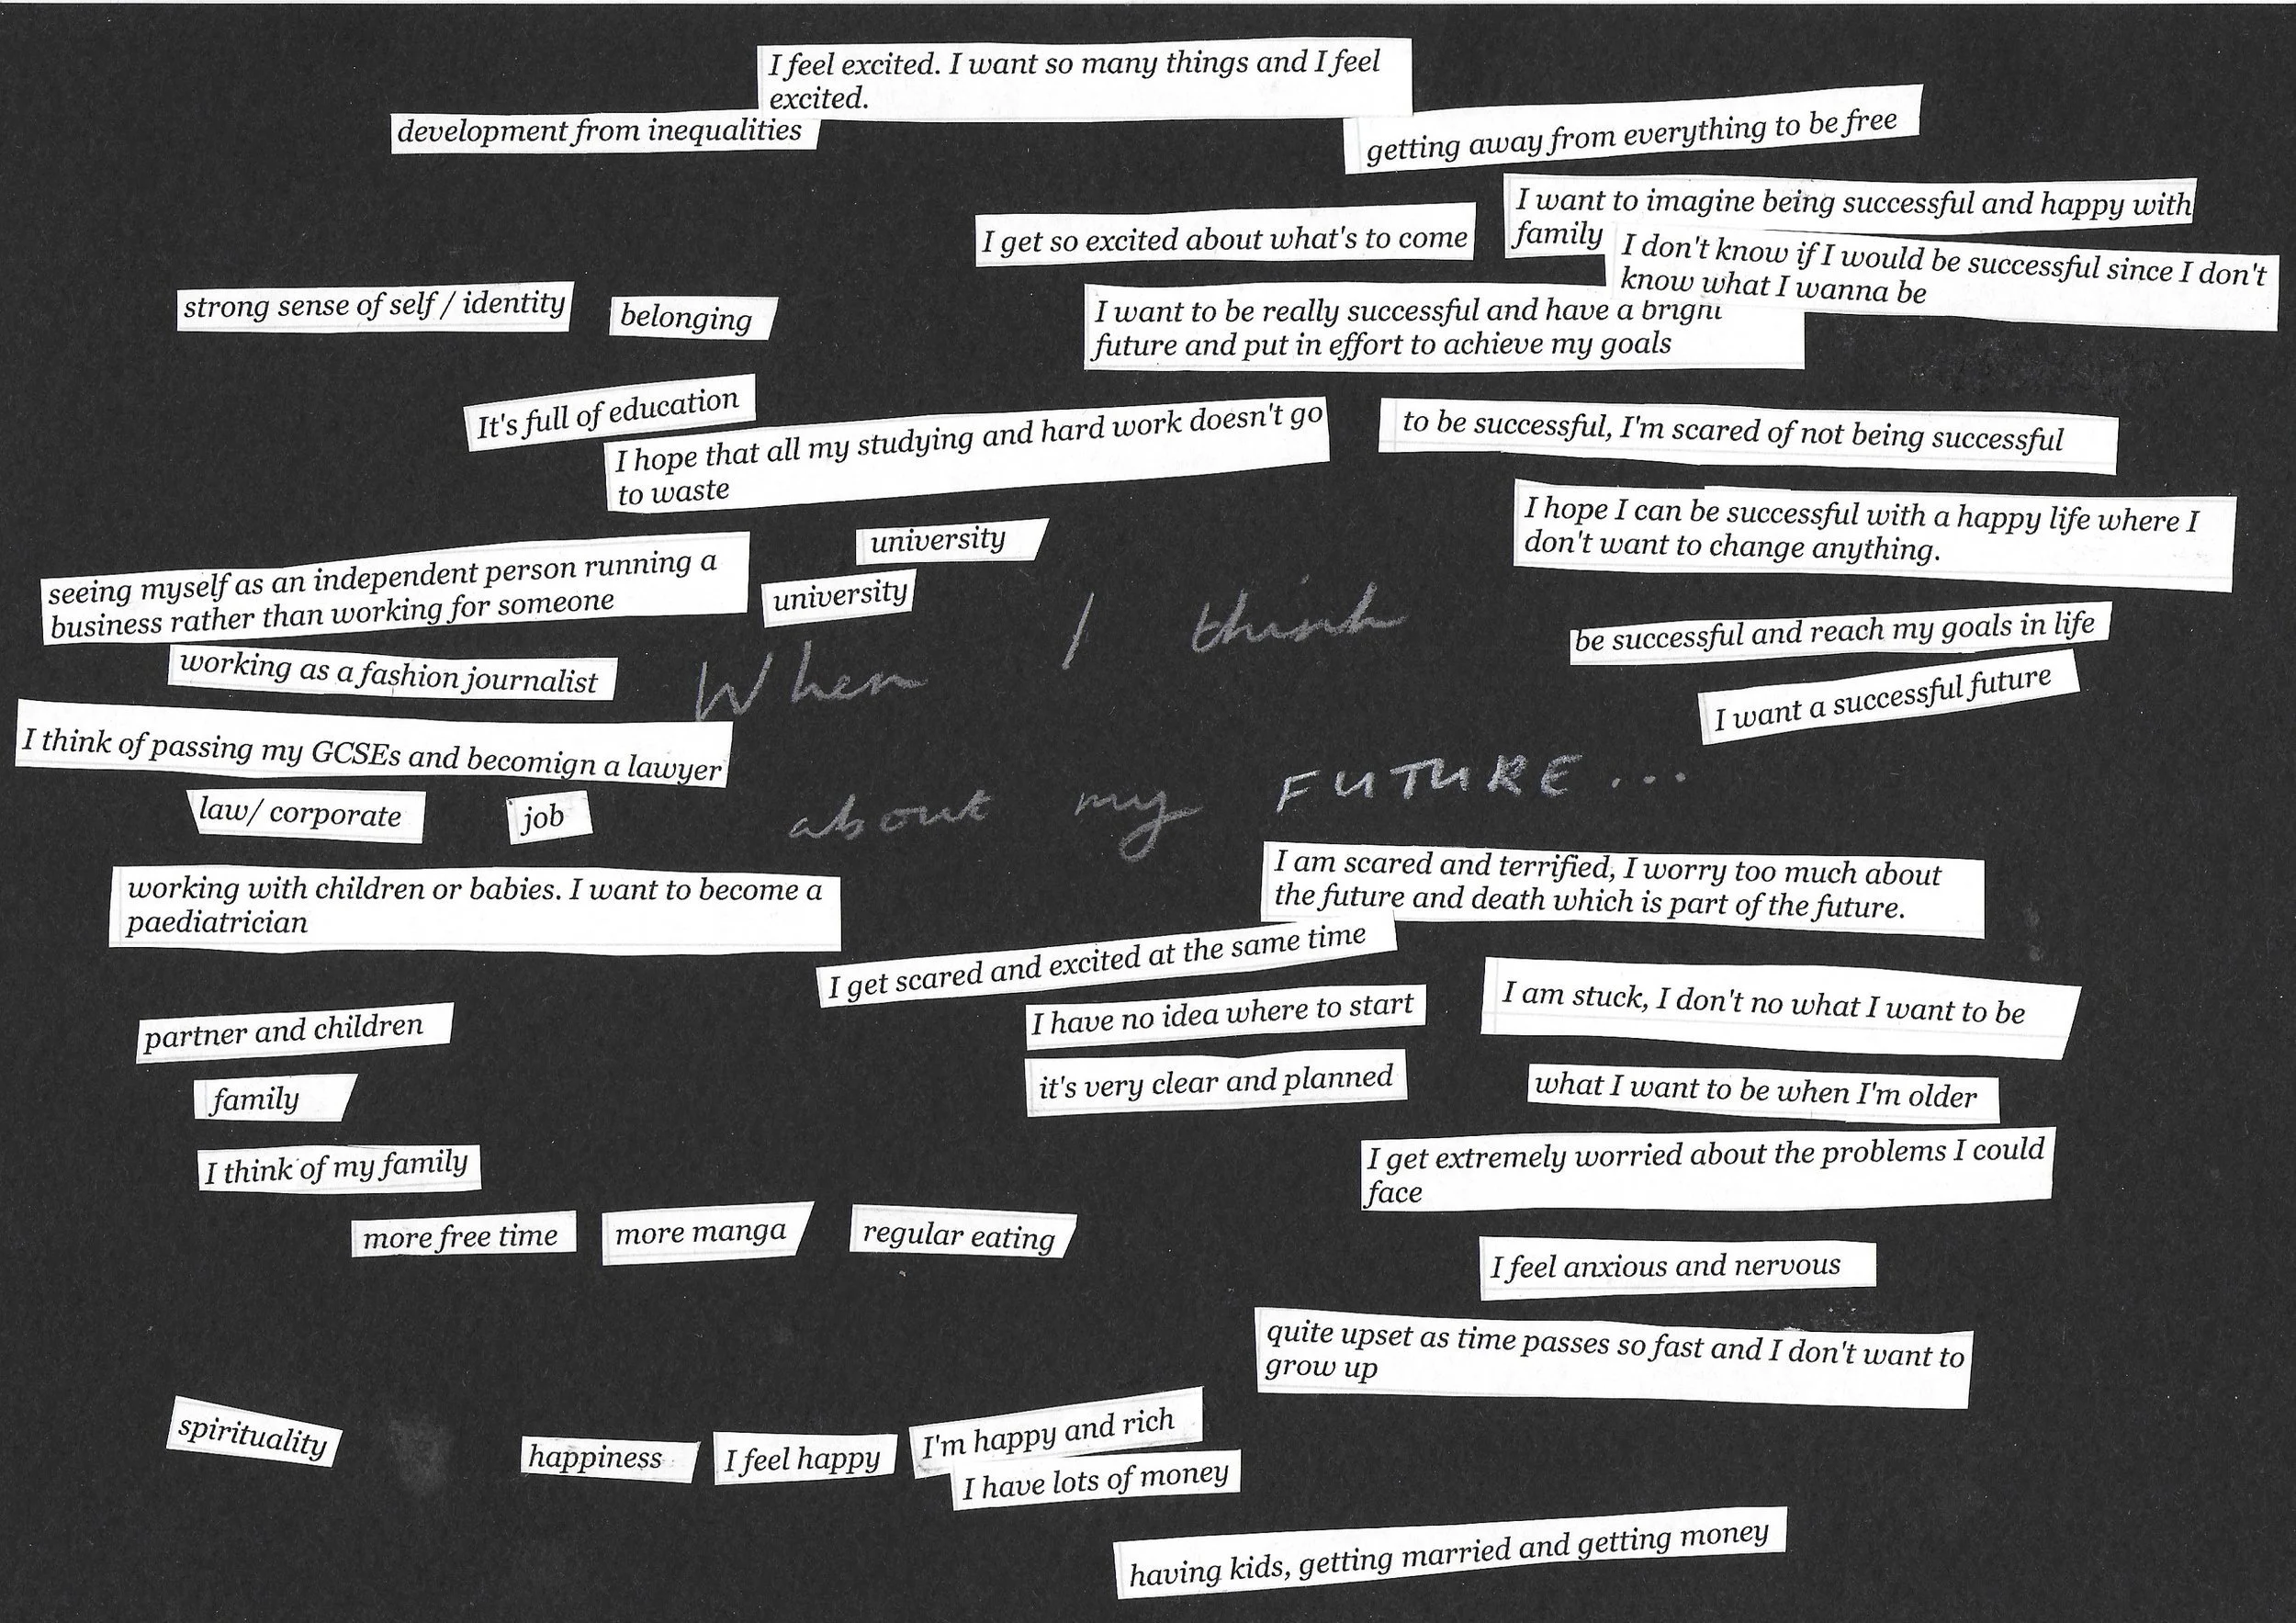 I feel excited. I want so many things and I feel
excited.
development from inequalities
getting away from everything to be free
I want to imagine being successful and happy with
family
I get so excited about what's to come
I don't know if I would be successful since I don't
know what I wanna be
strong sense of self / identity
belonging
I want to be really successful and have a bright
future and put in effort to achieve my goals
It's full of education
I hope that all my studying and hard work doesn't go
to waste
to be successful, I'm scared of not being successful
I hope I can be successful with a happy life where I
don't want to change anything.
university
university
seeing myself as an independent person running a
business rather than working for someone
working as a fashion journalist
When I think
be successful and reach my goals in life
I want a successful future
I think of passing my GCSEs and becomign a lawyer
law/ corporate
job
about my FUTURE...
working with children or babies. I want to become a
paediatrician
I am scared and terrified, I worry too much about
the future and death which is part of the future.
I get scared and excited at the same time
I have no idea where to start
I am stuck, I don't no what I want to be
partner and children
family
it's very clear and planned
what I want to be when I'm older
I think of my family
I get extremely worried about the problems I could
face
more free time
more manga
regular eating
I feel anxious and nervous
quite upset as time passes so fast and I don't want to
grow up
spirituality
happiness
I feel happy
I'm happy and rich
I have lots of money
having kids, getting married and getting money